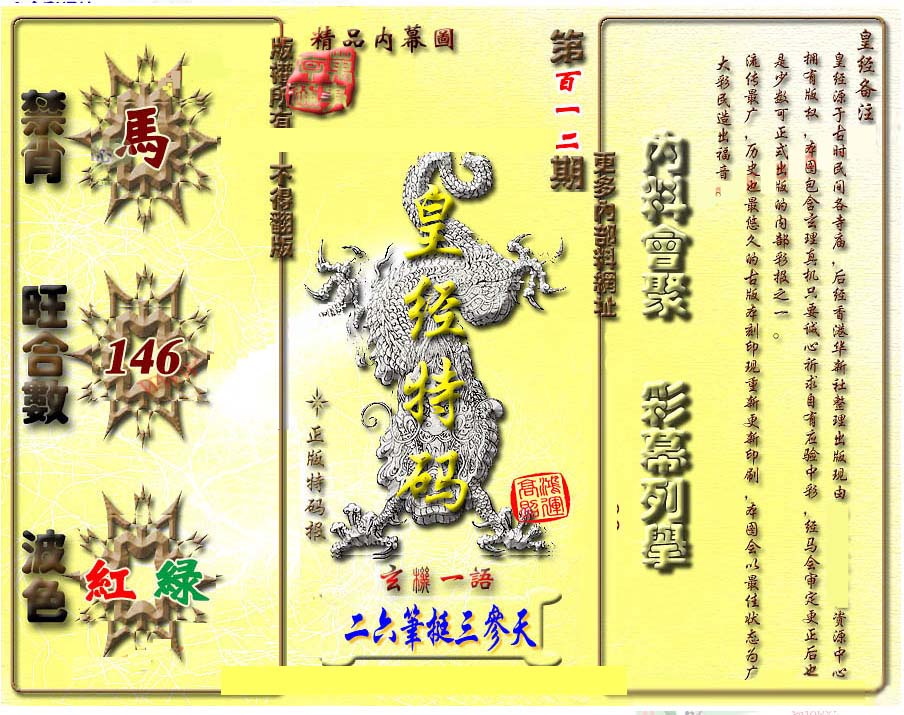 精品内幕圖
第百一二期
版權所有
不得翻版
更多內部料網址
禁肖
馬
旺合數
146
波色
紅 綠
皇经特码
正版特码报
鴻運高照
玄機一語
二六筆挺三參天
內料會聚
彩幕列舉
皇经备注
皇经源于古时民间各寺庙，后经香港华新社整理出版现由 资源中心
拥有版权，本图包含玄理真机只要诚心祈求自有应验中彩，经马会审定更正后也
是少数可正式出版的内部彩报之一。
流传最广，历史也最悠久的古版本刻印现重新更新印刷，本图会以最佳状态为广
大彩民造出福音